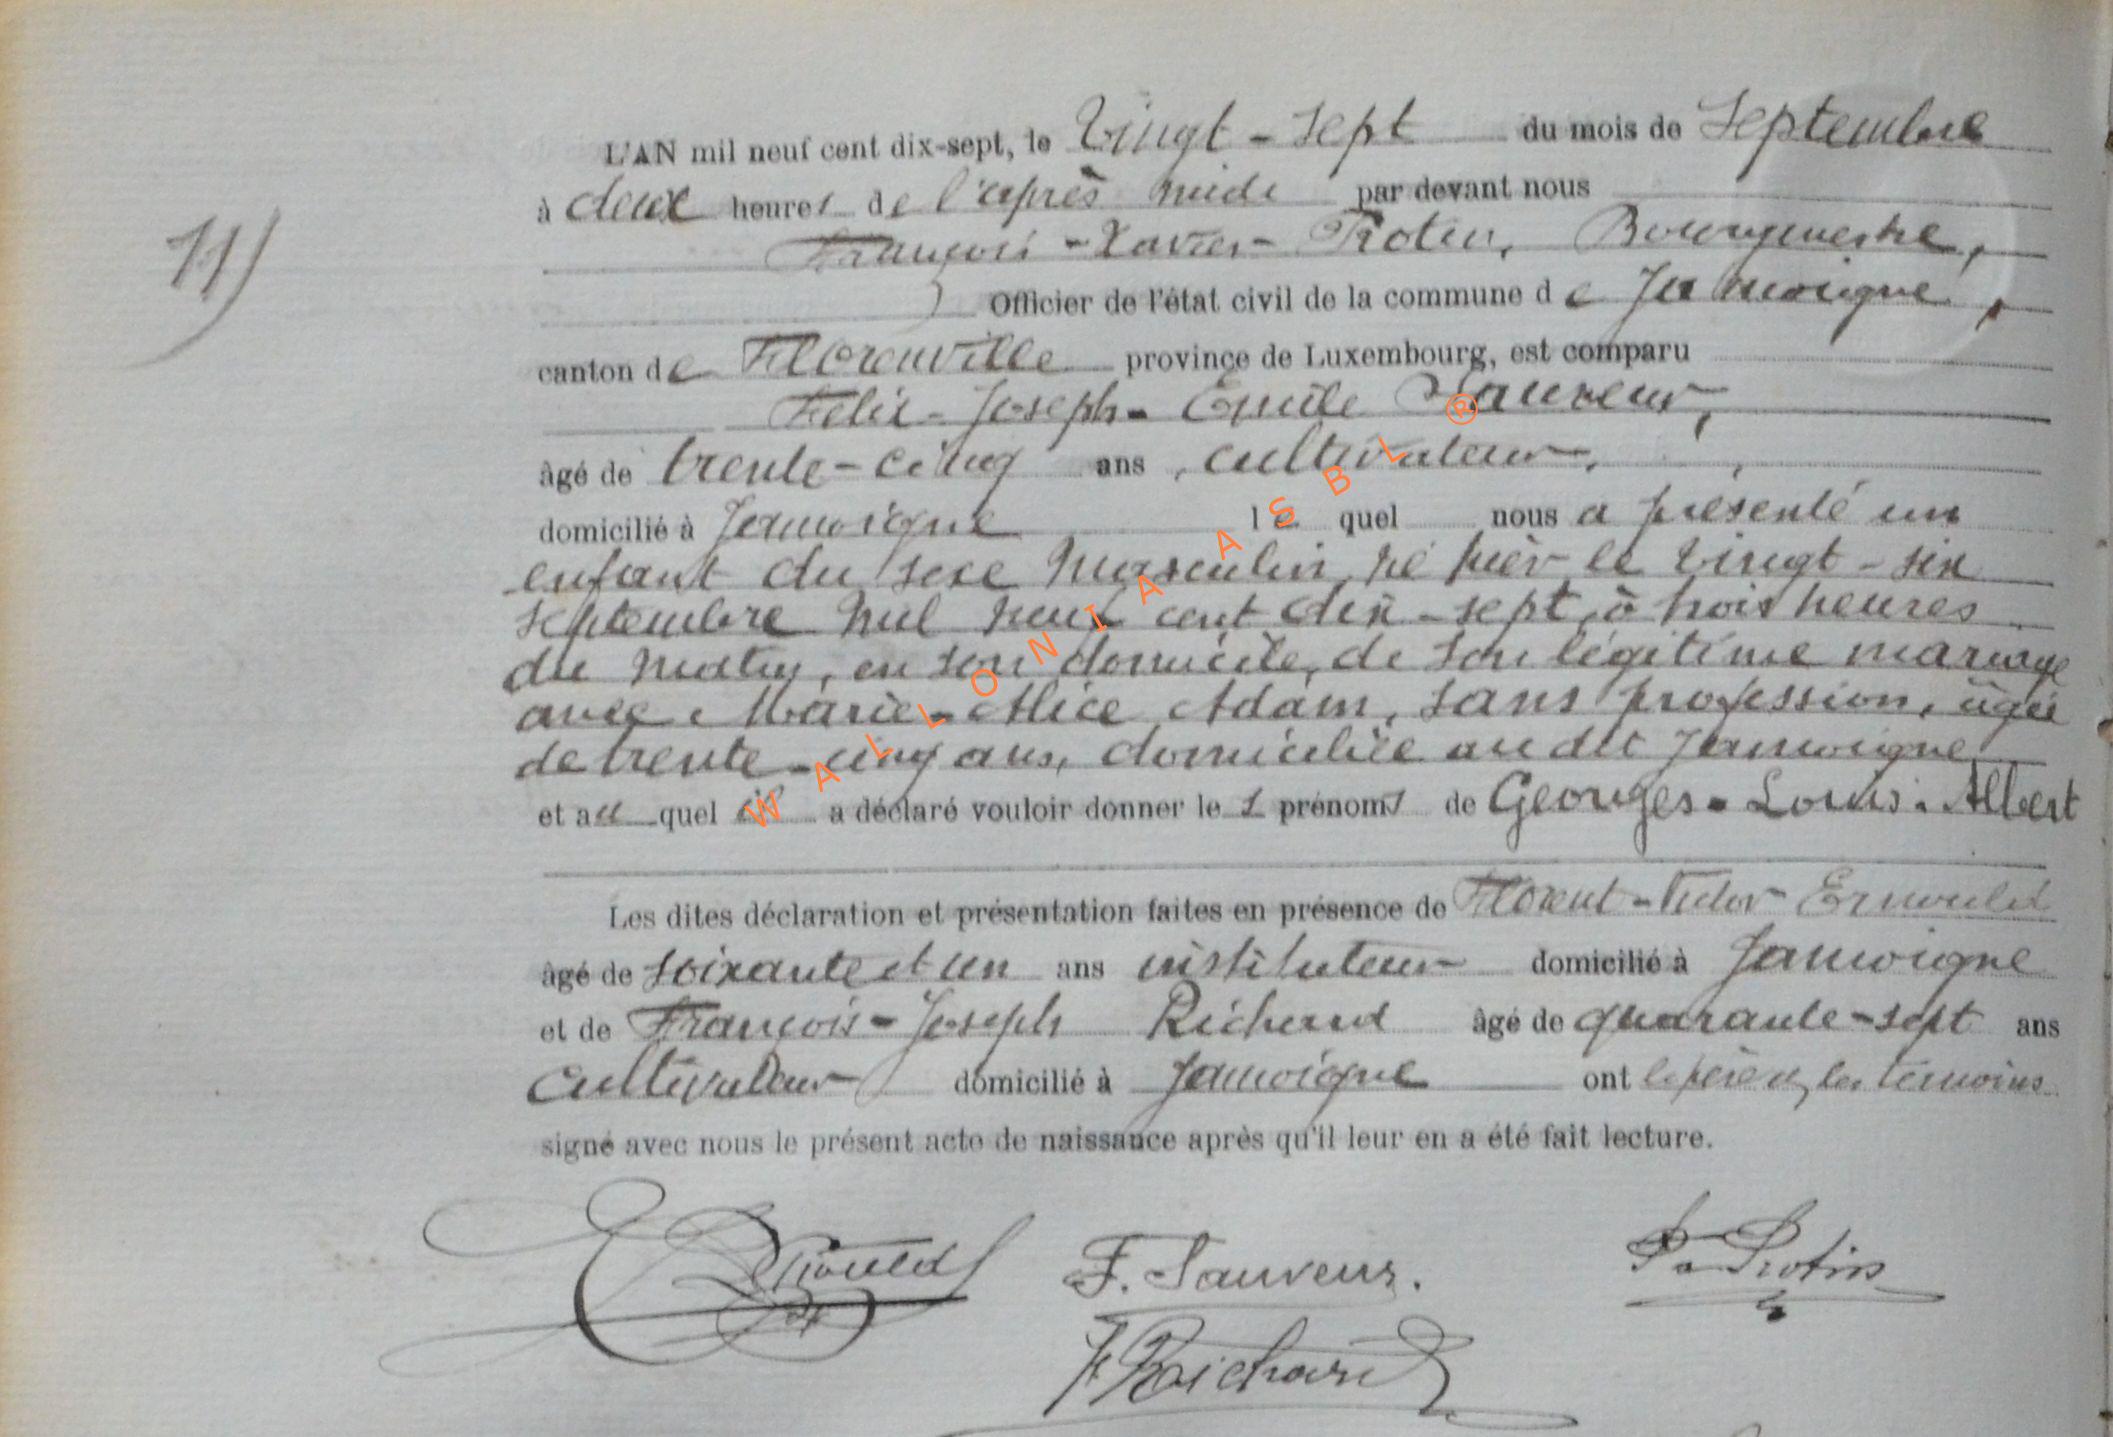 11)
L'AN mil neuf cent dix-sept, le Vingt-sept du mois de Septembre
à deux heures de l'après midi par devant nous
François-Xavier-Protin, Bourgmestre,
Officier de l'état civil de la commune de Jamoigne,
canton de Florenville province de Luxembourg, est comparu
Félix-Joseph-Emile Sauveur,
âgé de trente-cinq ans, cultivateur,
domicilié à Jamoigne lequel nous a présenté un
enfant du sexe masculin, né hier le vingt-six
septembre mil neuf cent dix-sept, à trois heures
du matin, en son domicile, de son légitime mariage
avec Marie-Alice Adam, sans profession, âgée
de trente-cinq ans, domiciliée au dit Jamoigne
et auquel il a déclaré vouloir donner les prénoms de Georges-Louis-Albert
Les dites déclaration et présentation faites en présence de Florent-Victor Ernould
âgé de soixante et un ans instituteur domicilié à Jamoigne
et de François-Joseph Richard âgé de quarante-sept ans
cultivateur domicilié à Jamoigne ont le père et les témoins
signé avec nous le présent acte de naissance après qu'il leur en a été fait lecture.
F. Sauveur.
Protin
F Richard
WALLONIA ASBL ®